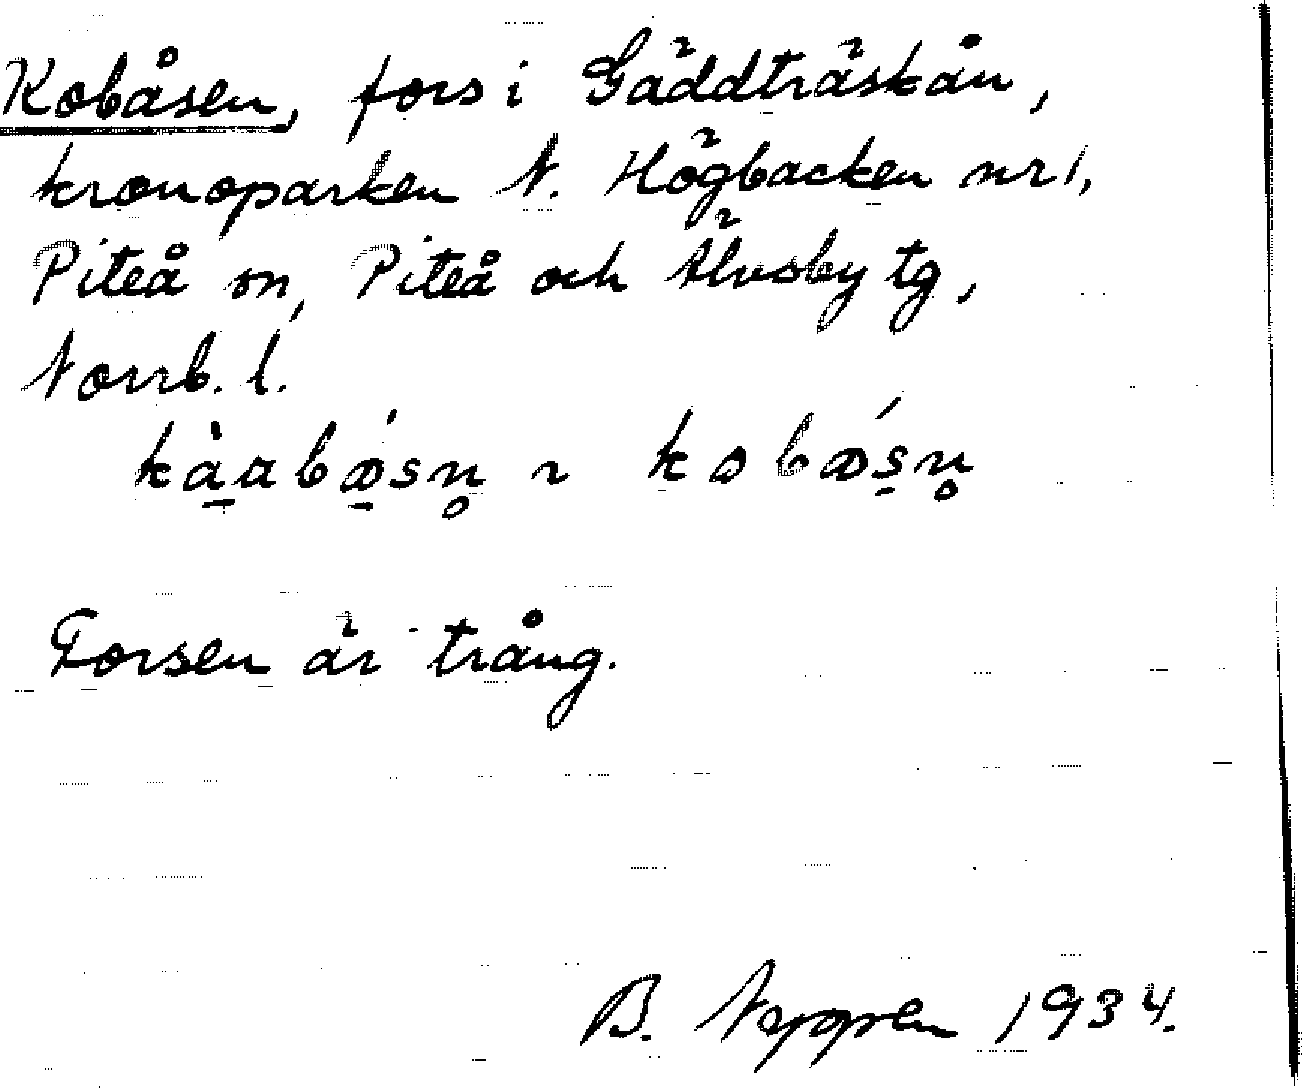 Kobåsen, fors i Gäddträskån,
kronoparken N. Högbacken nr 1,
Piteå sn, Piteå och Älvsby tg,
Norrb. l.
Forsen är trång.
B. 1934.